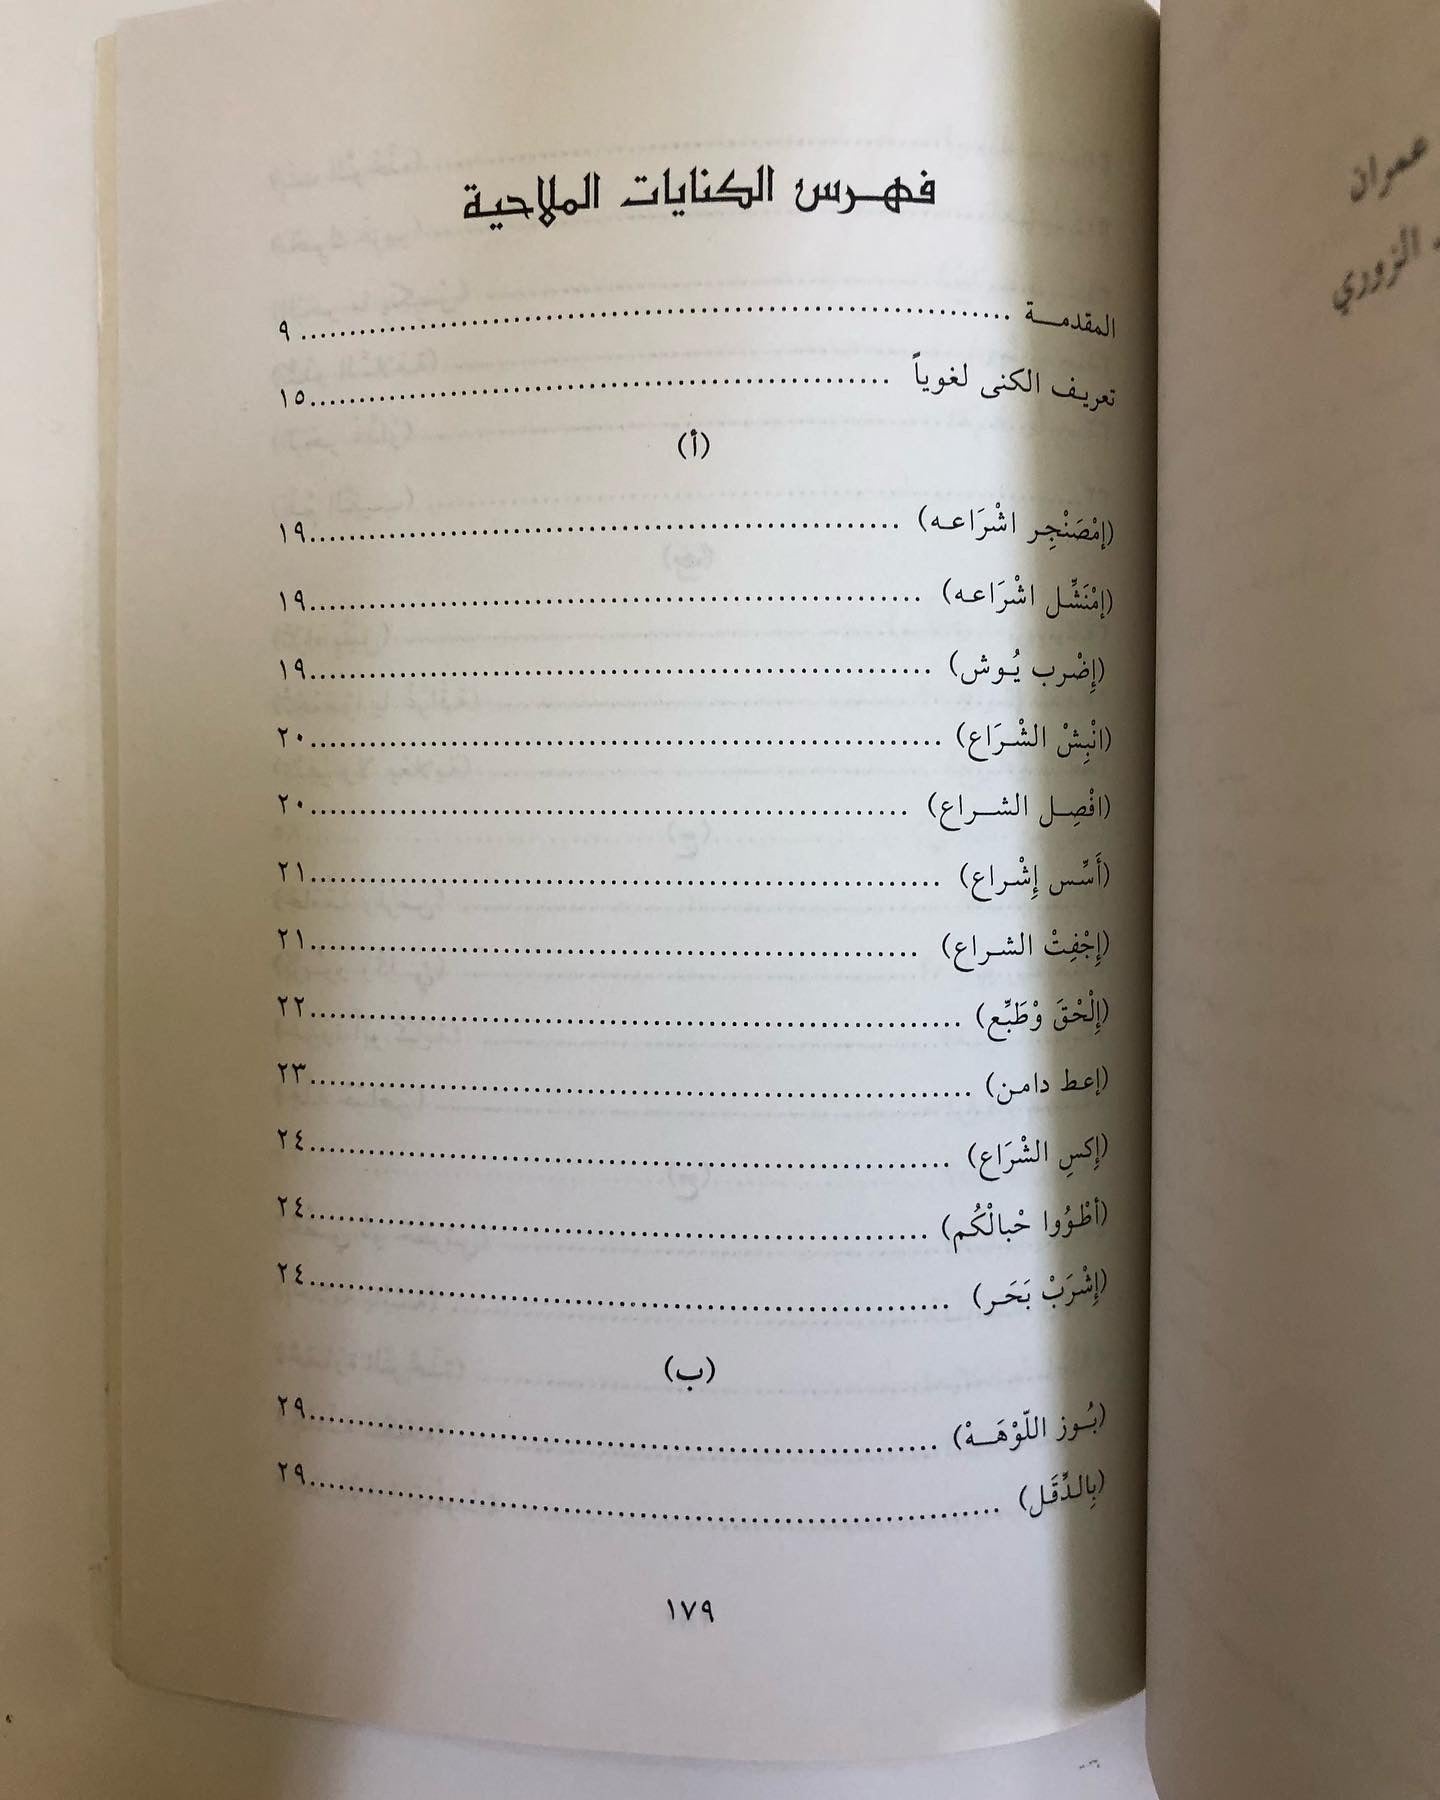 فهرس الكنايات الملاحية
المقدمـــة .......... ٩
تعريف الكنى لغوياً .......... ١٥
(أ)
(إمْصَنْجِر اشْرَاعه) .......... ١٩
(إمْنَشِّل اشْرَاعه) .......... ١٩
(إِضْرب يُوش) .......... ١٩
(انْبِشْ الشْرَاع) .......... ٢٠
(افْصِل الشراع) .......... ٢٠
(أَسِّس إِشْراع) .......... ٢١
(إِجْفِتْ الشراع) .......... ٢١
(إِلْحْقَ وْطَبِّع) .......... ٢٢
(إعط دامن) .......... ٢٣
(إِكسِ الشْرَاع) .......... ٢٤
(أطْوُوا حْبالْكُم) .......... ٢٤
(إِشْرَبْ بَحَر) .......... ٢٤
(ب)
(بُوز اللّوْهَـهْ) .......... ٢٩
(بِالدِّقَل) .......... ٢٩
١٧٩
عمران
الزوري